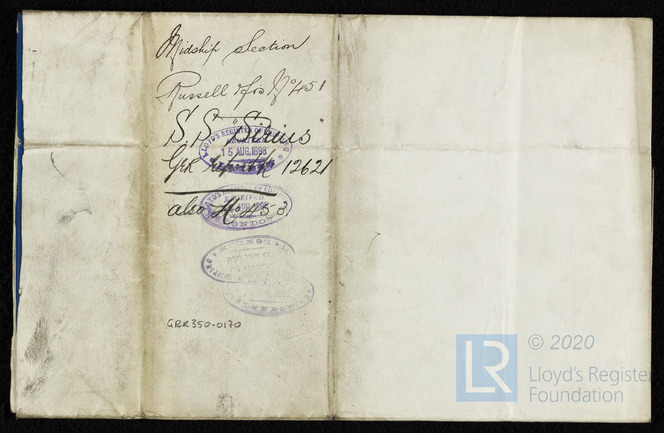 Midship Section
Russell & Co's No 451
S.S. "Sirius"
LLOYD'S REGISTER OF
15 AUG. 1898
Grk report No 12621
also No 453
LONDON
GRK350-0170
© 2020
LR
Lloyd's Register
Foundation